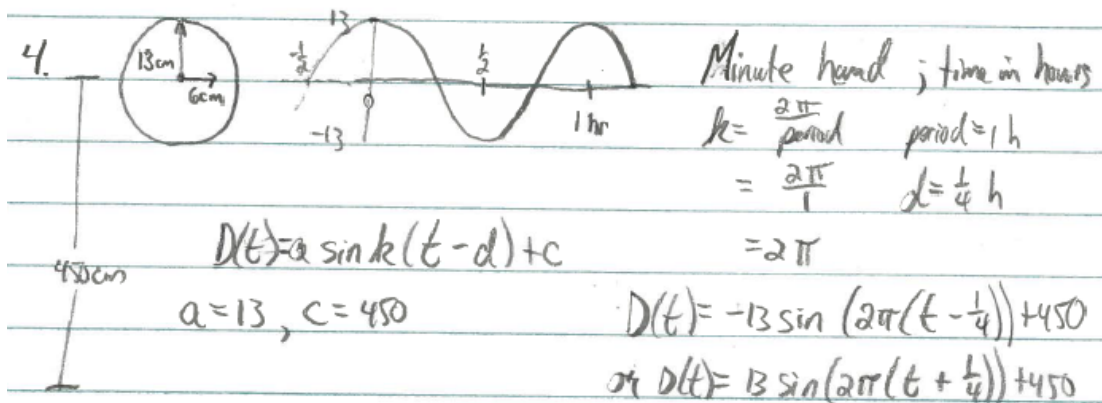 4.
13cm
6cm
450cm
13
-1/2
0
-13
1/2
1 hr
Minute hand ; time in hours
k = 2π/period period = 1 h
= 2π/1 d = 1/4 h
= 2π
D(t) = a sin k(t - d) + c
a = 13, c = 450
D(t) = -13 sin (2π(t - 1/4)) + 450
or D(t) = 13 sin (2π(t + 1/4)) + 450